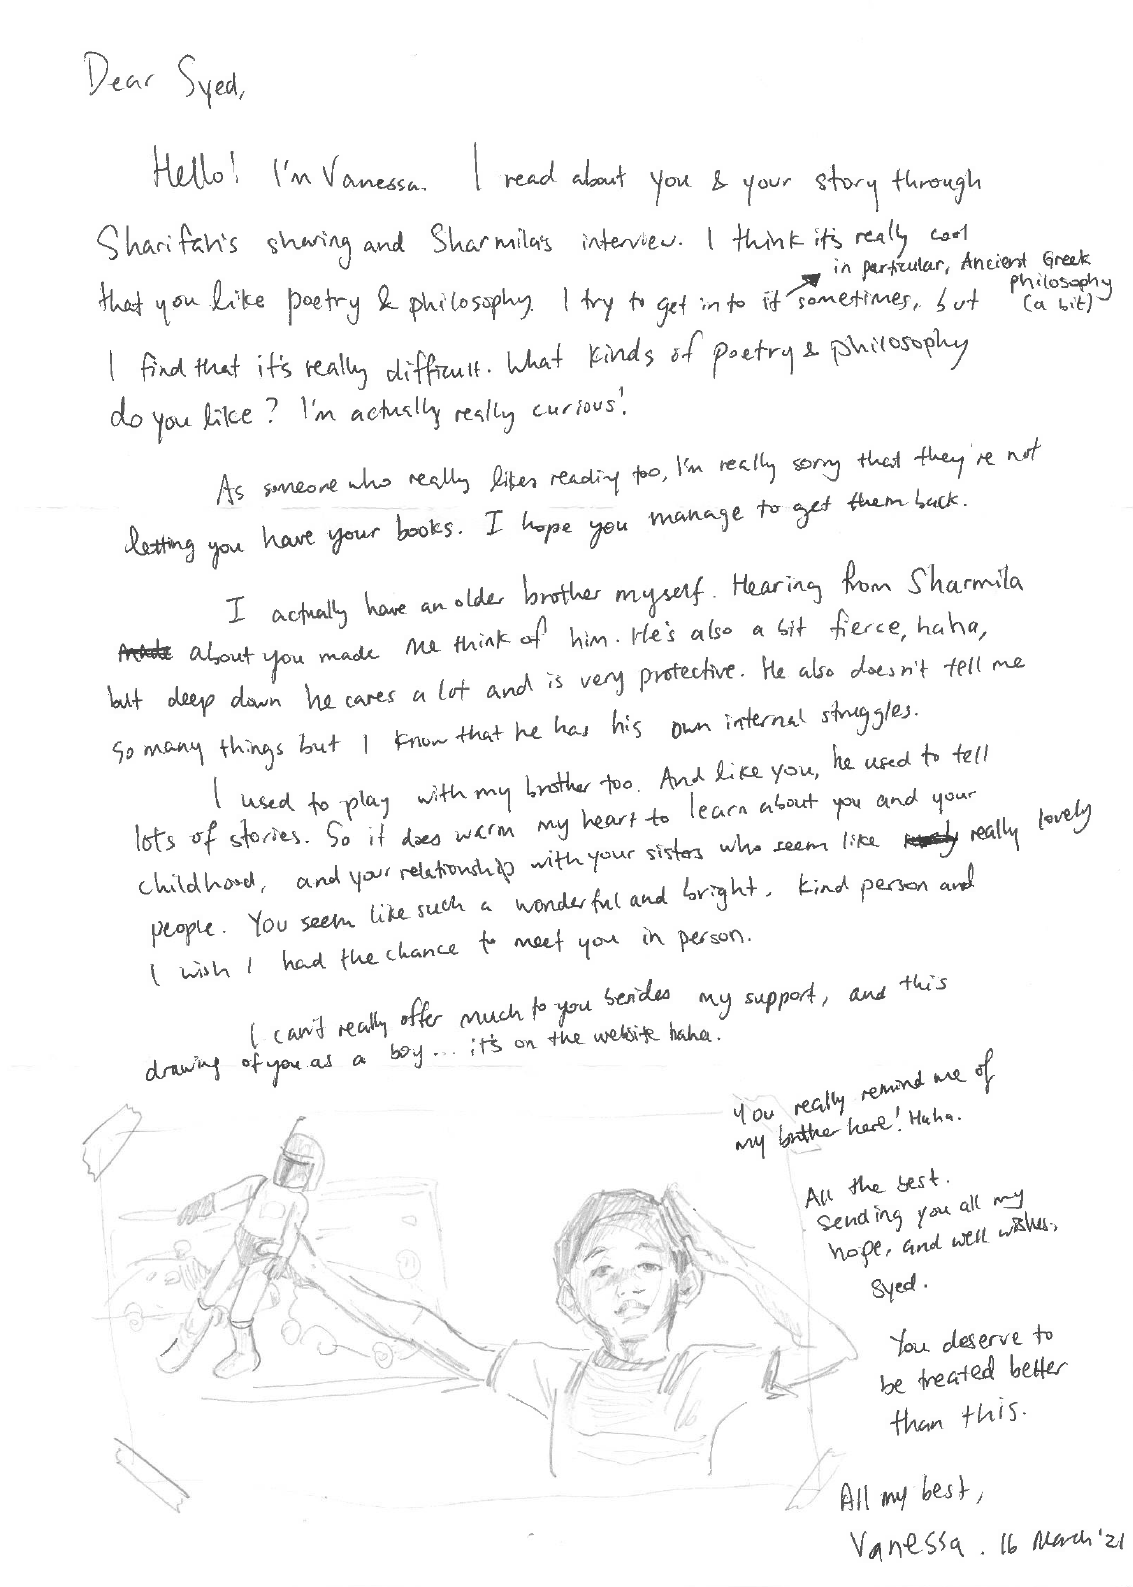 Dear Syed,
Hello! I'm Vanessa. I read about you & your story through
Sharifah's sharing and Sharmila's interview. I think it's really cool
that you like poetry & philosophy. I try to get into it sometimes, but
in particular, Ancient Greek
philosophy
(a bit)
I find that it's really difficult. What kinds of poetry & philosophy
do you like? I'm actually really curious!
As someone who really likes reading too, I'm really sorry that they're not
letting you have your books. I hope you manage to get them back.
I actually have an older brother myself. Hearing from Sharmila
about you made me think of him. He's also a bit fierce, haha,
but deep down he cares a lot and is very protective. He also doesn't tell me
so many things but I know that he has his own internal struggles.
I used to play with my brother too. And like you, he used to tell
lots of stories. So it does warm my heart to learn about you and your
childhood, and your relationship with your sisters who seem like really lovely
people. You seem like such a wonderful and bright, kind person and
I wish I had the chance to meet you in person.
I can't really offer much to you besides my support, and this
drawing of you as a boy... it's on the website haha.
You really remind me of
my brother here! Haha.
All the best.
Sending you all my
hope, and well wishes,
Syed.
You deserve to
be treated better
than this.
All my best,
Vanessa. 16 March '21